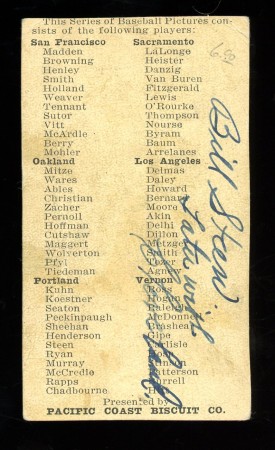 This Series of Baseball Pictures con-
sists of the following players:
San Francisco
Madden
Browning
Henley
Smith
Holland
Weaver
Tennant
Sutor
Vitt
McArdle
Berry
Mohler
Sacramento
LaLonge
Heister
Danzig
Van Buren
Fitzgerald
Lewis
O'Rourke
Thompson
Nourse
Byram
Baum
Arrelanes
Oakland
Mitze
Wares
Ables
Christian
Zacher
Pernoll
Hoffman
Cutshaw
Maggert
Wolverton
Pfyl
Tiedeman
Los Angeles
Delmas
Daley
Howard
Bernard
Moore
Akin
Delhi
Dillon
Metzger
Smith
Tozer
Agnew
Portland
Kuhn
Koestner
Seaton
Peckinpaugh
Sheehan
Henderson
Steen
Ryan
Murray
McCredie
Rapps
Chadbourne
Vernon
Ross
Hogan
McDonnell
Brashear
Gipe
Carlisle
Patterson
Presented by
PACIFIC COAST BISCUIT CO.
Bill Steen
Later with
Cleveland.